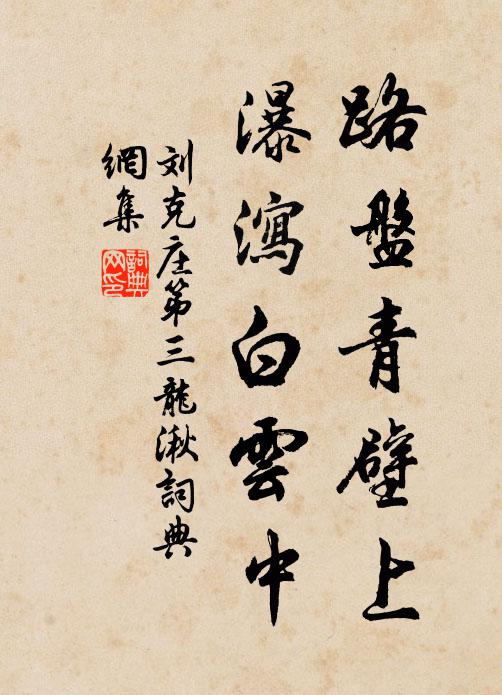 路盤青壁上
瀑瀉白雲中
刘克庄第三龍湫詞典
網集
詞典
网印